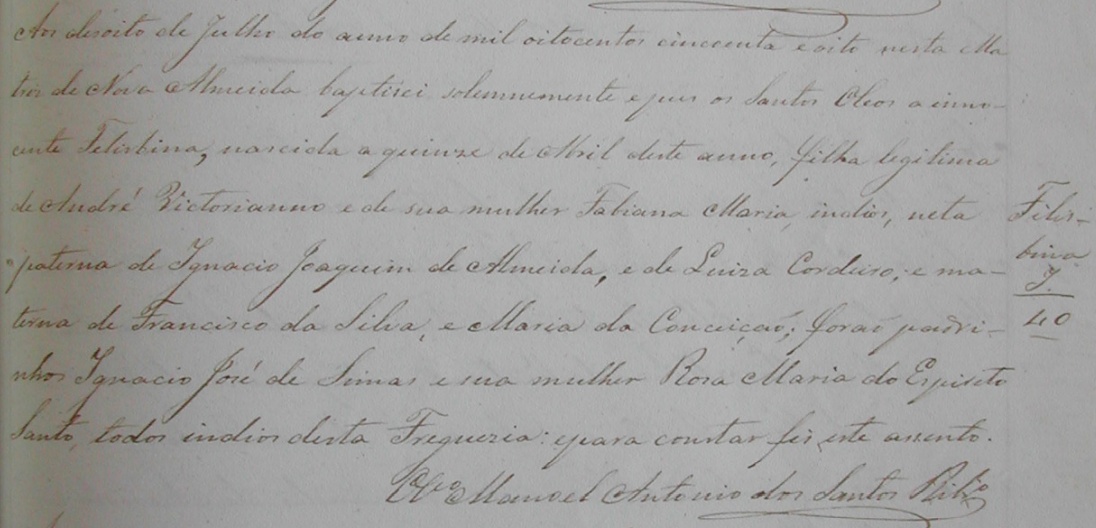 Aos desoito de Julho do anno de mil oitocentos cincoenta e oito nesta Ma
triz de Nova Almeida baptisei solemnemente e pus os Santos Oleos a inno-
cente Felisbina, nascida a quinze de Abril deste anno, filha legitima
de André Victorianno e de sua mulher Fabiana Maria, indios, neta
paterna de Ignacio Joaquim de Almeida, e de Luiza Cordeiro; e ma-
terna de Francisco da Silva, e Maria da Conceiçaõ; foraõ padri-
nhos Ignacio José de Simas e sua mulher Rosa Maria do Espirito
Santo, todos indios desta Freguezia: e para constar fis este assento.
Manoel Antonio dos Santos Ribro
Felis-
bina
I.
40